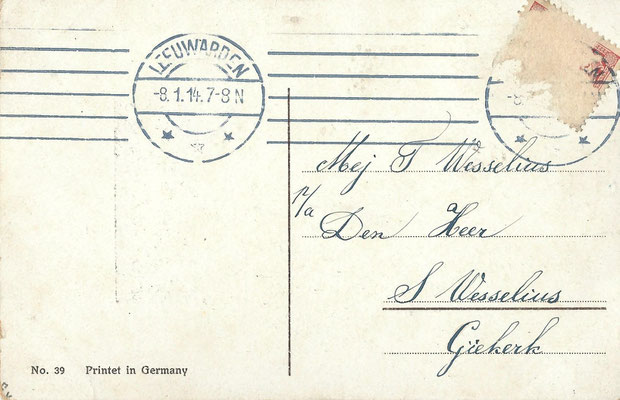 LEEUWARDEN
-8.1.14.7-8 N
Mej T Wesselius
p/a
Den Heer
S Wesselius
Giekerk
No. 39 Printet in Germany